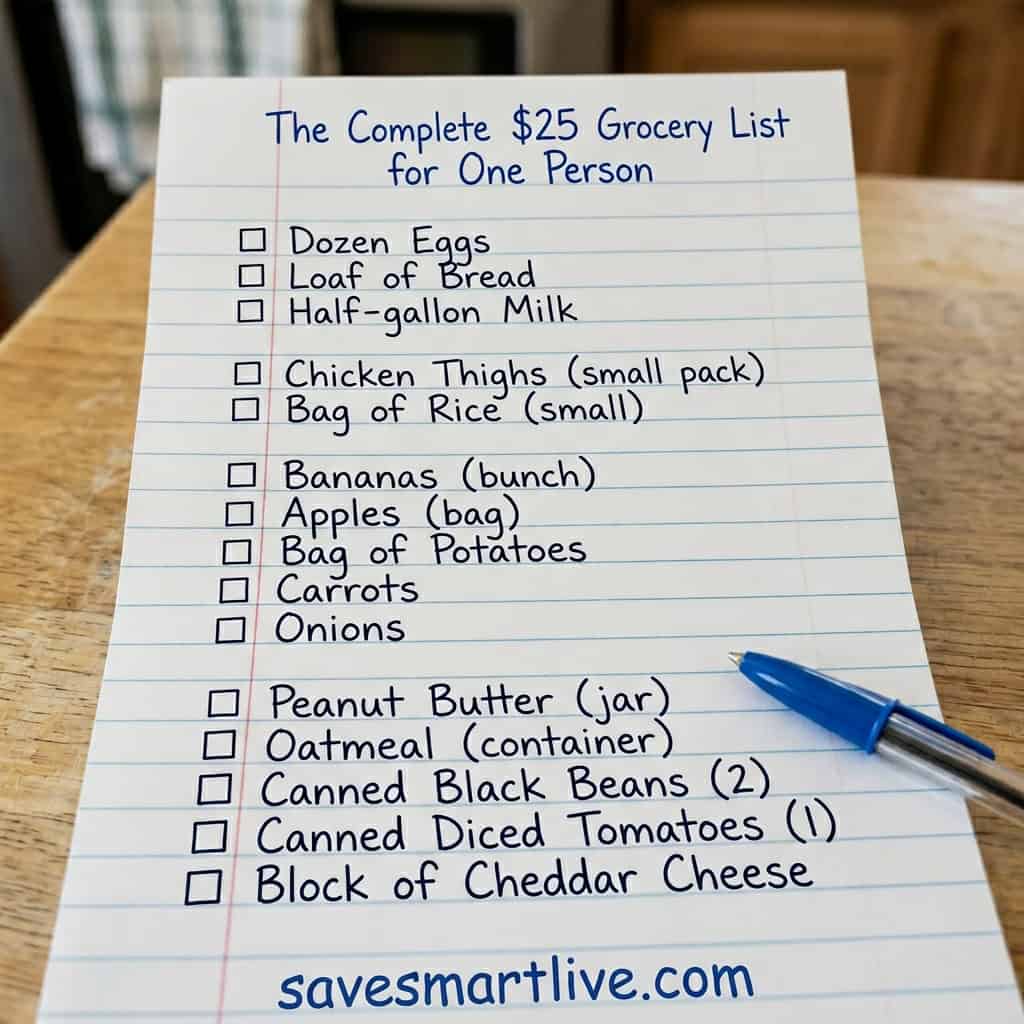 The Complete $25 Grocery List
for One Person
Dozen Eggs
Loaf of Bread
Half-gallon Milk
Chicken Thighs (small pack)
Bag of Rice (small)
Bananas (bunch)
Apples (bag)
Bag of Potatoes
Carrots
Onions
Peanut Butter (jar)
Oatmeal (container)
Canned Black Beans (2)
Canned Diced Tomatoes (1)
Block of Cheddar Cheese
savesmartlive.com